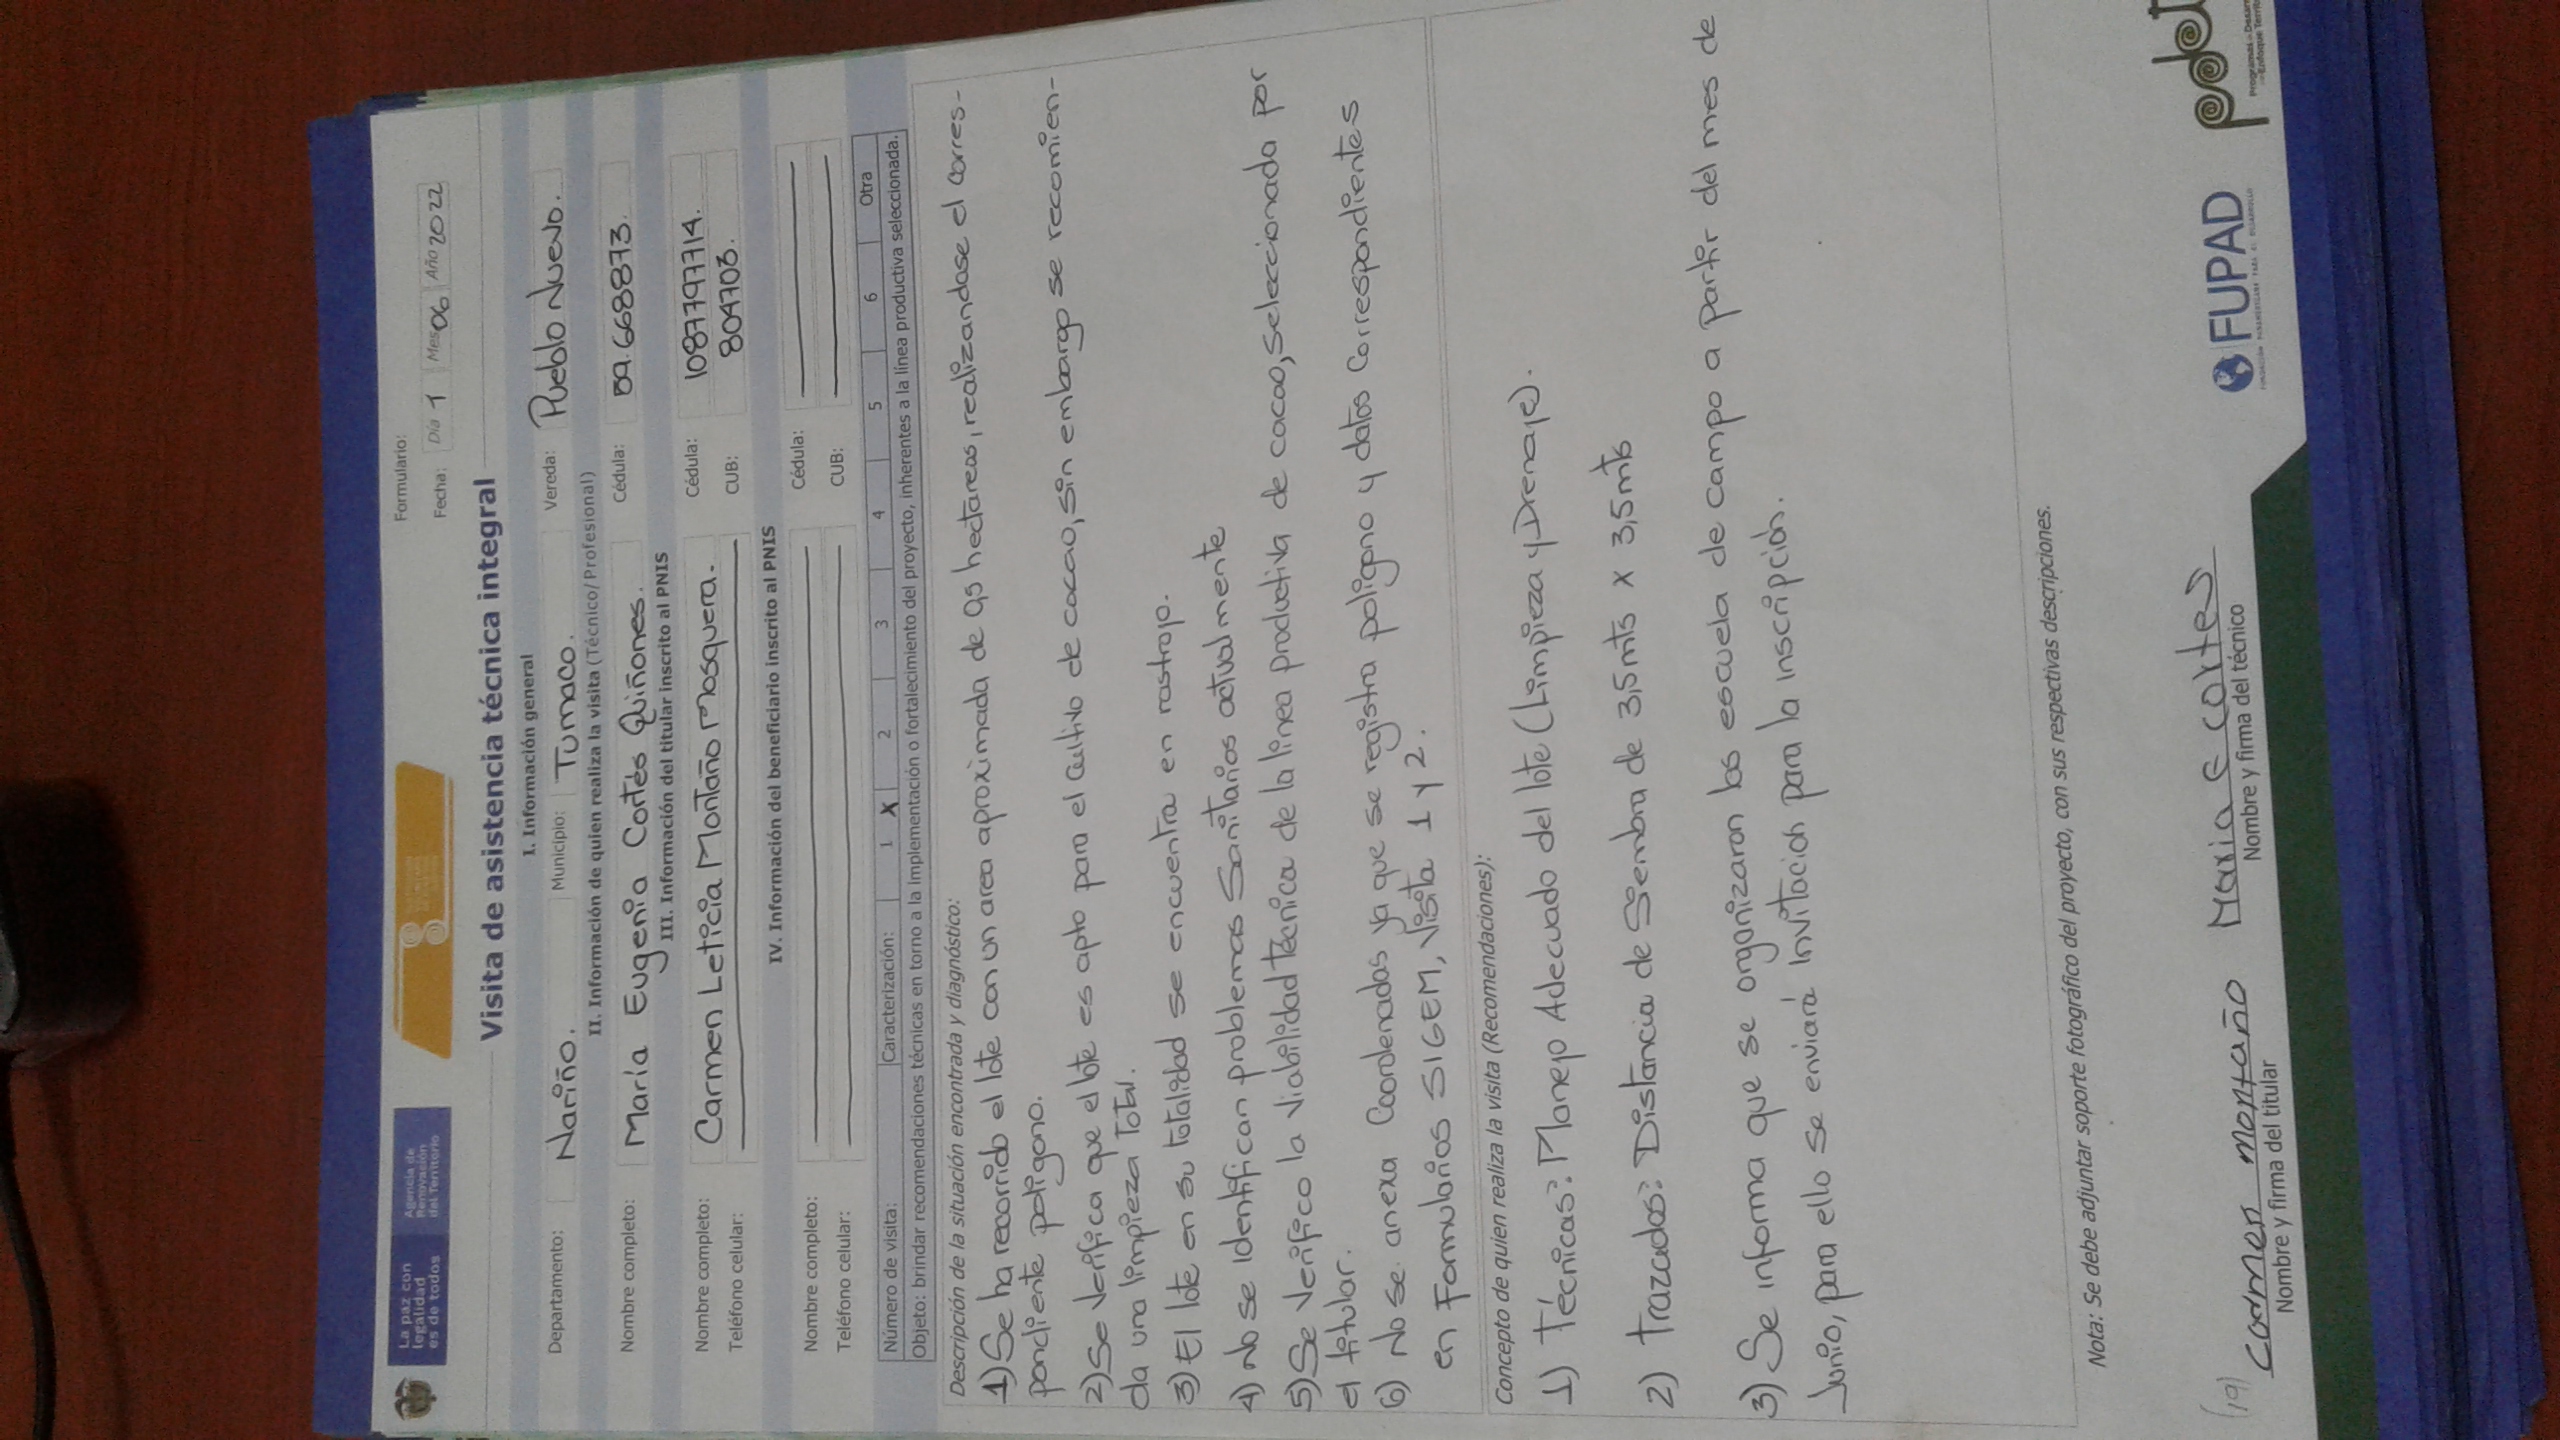 La paz con
legalidad
es de todos
Agencia de
Renovación
del Territorio
Formulario:
Fecha: Día 1 Mes 06 Año 2022
Visita de asistencia técnica integral
I. Información general
Departamento: Nariño. Municipio: Tumaco. Vereda: Pueblo Nuevo.
II. Información de quien realiza la visita (Técnico/Profesional)
Nombre completo: María Eugenia Cortés Quiñones. Cédula: 59.668873.
III. Información del titular inscrito al PNIS
Nombre completo: Carmen Leticia Montaño Mosquera. Cédula: 1087797714.
Teléfono celular: CUB: 804703.
IV. Información del beneficiario inscrito al PNIS
Nombre completo: Cédula:
Teléfono celular: CUB:
Número de visita: Caracterización: 1 X 2 3 4 5 6 Otra
Objeto: brindar recomendaciones técnicas en torno a la implementación o fortalecimiento del proyecto, inherentes a la línea productiva seleccionada.
Descripción de la situación encontrada y diagnóstico:
1) Se ha recorrido el lote con un area aproximada de 0,5 hectareas, realizandose el corres-
pondiente poligono.
2) Se verifica que el lote es apto para el cultivo de cacao, sin embargo se recomien-
da una limpieza Total.
3) El lote en su totalidad se encuentra en rastrojo.
4) No se identifican problemas Sanitarios actualmente
5) Se verifico la viabilidad Técnica de la linea productiva de cacao, seleccionada por
el titular.
6) No se anexa Coordenadas ya que se registra poligono y datos correspondientes
en Formularios SIGEM, Visita 1 y 2.
Concepto de quien realiza la visita (Recomendaciones):
1) Técnicas: Manejo Adecuado del lote (Limpieza y Drenaje).
2) Trazados: Distancia de Siembra de 3,5mts x 3,5mts
3) Se informa que se organizaron las escuela de campo a partir del mes de
Junio, para ello se enviará invitación para la inscripción.
Nota: Se debe adjuntar soporte fotográfico del proyecto, con sus respectivas descripciones.
(19)
Carmen montaño
Nombre y firma del titular
Maria e cortes
Nombre y firma del técnico
FUPAD
FUNDACIÓN PANAMERICANA PARA EL DESARROLLO